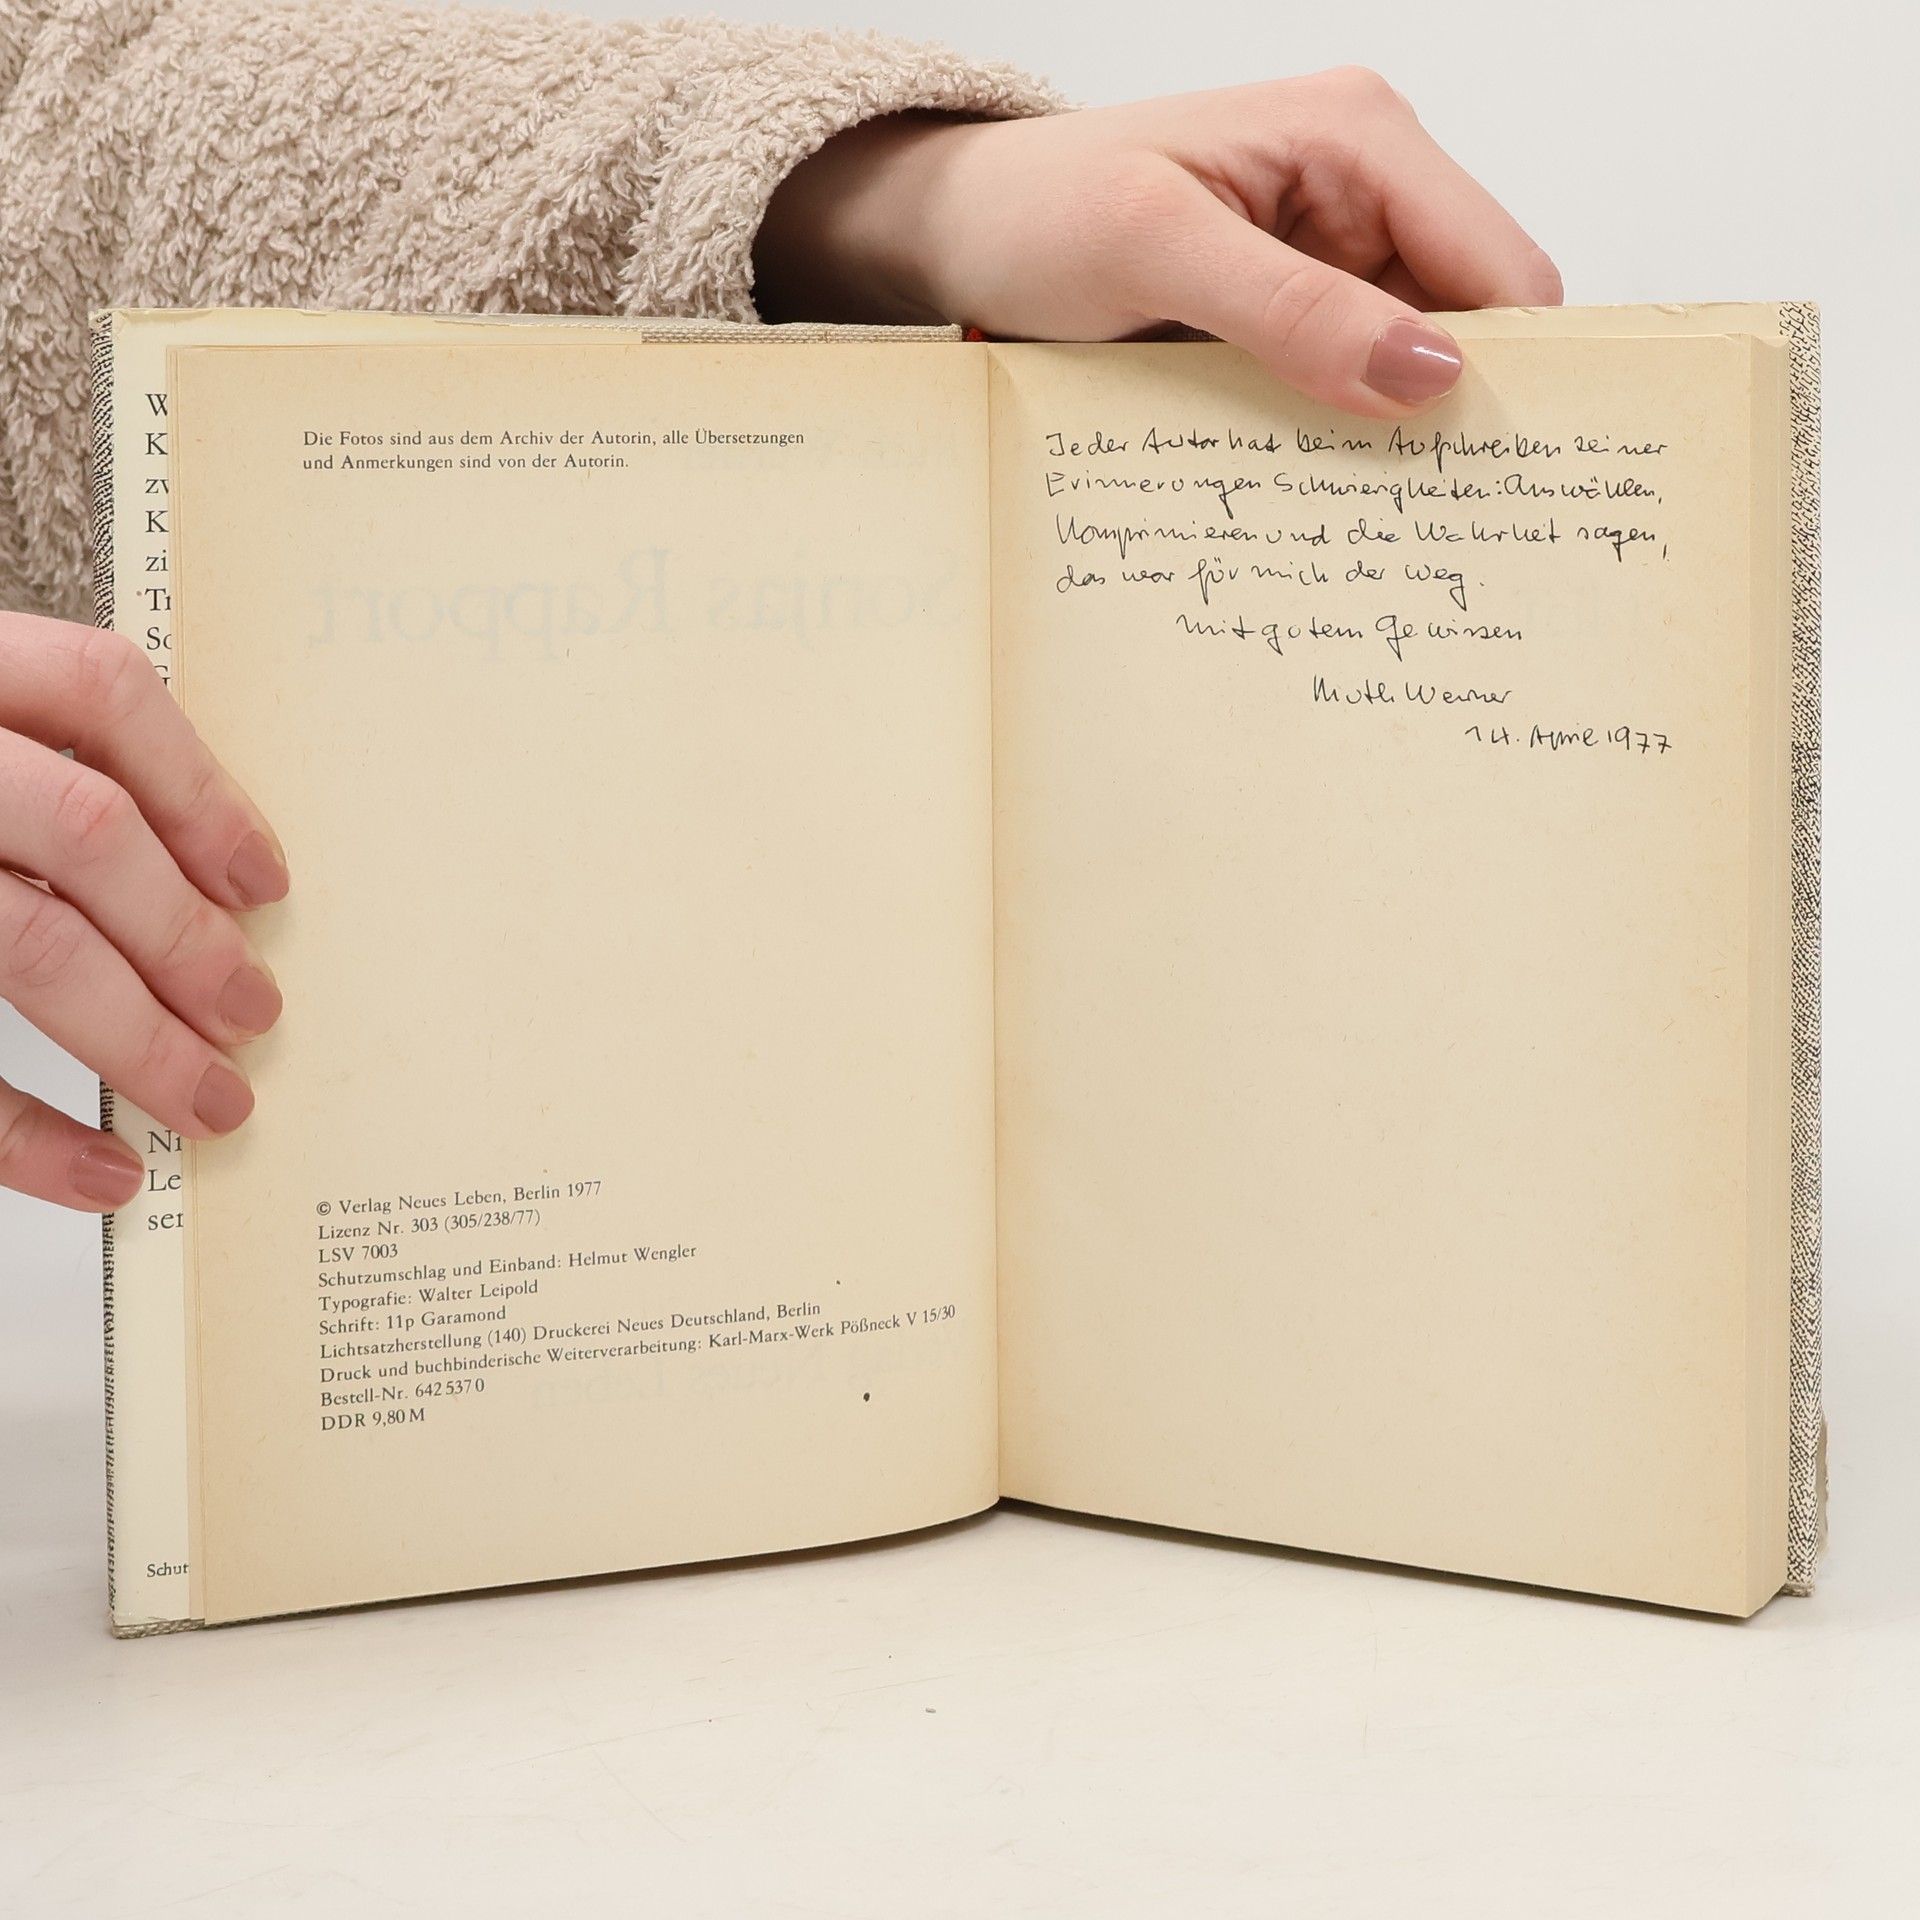 W
K
zw
K
zi
Tr
So
G
Ni
Le
ser
Schut
Die Fotos sind aus dem Archiv der Autorin, alle Übersetzungen
und Anmerkungen sind von der Autorin.
Sonjas Rapport
© Verlag Neues Leben, Berlin 1977
Lizenz Nr. 303 (305/238/77)
LSV 7003
Schutzumschlag und Einband: Helmut Wengler
Typografie: Walter Leipold
Schrift: 11p Garamond
Lichtsatzherstellung (140) Druckerei Neues Deutschland, Berlin
Druck und buchbinderische Weiterverarbeitung: Karl-Marx-Werk Pößneck V 15/30
Bestell-Nr. 642 537 0
DDR 9,80 M
Jeder Autor hat beim Aufschreiben seiner
Erinnerungen Schwierigkeiten: Auswählen,
Komprimieren und die Wahrheit sagen,
das war für mich der Weg.
Mit gutem Gewissen
Ruth Werner
14. April 1977